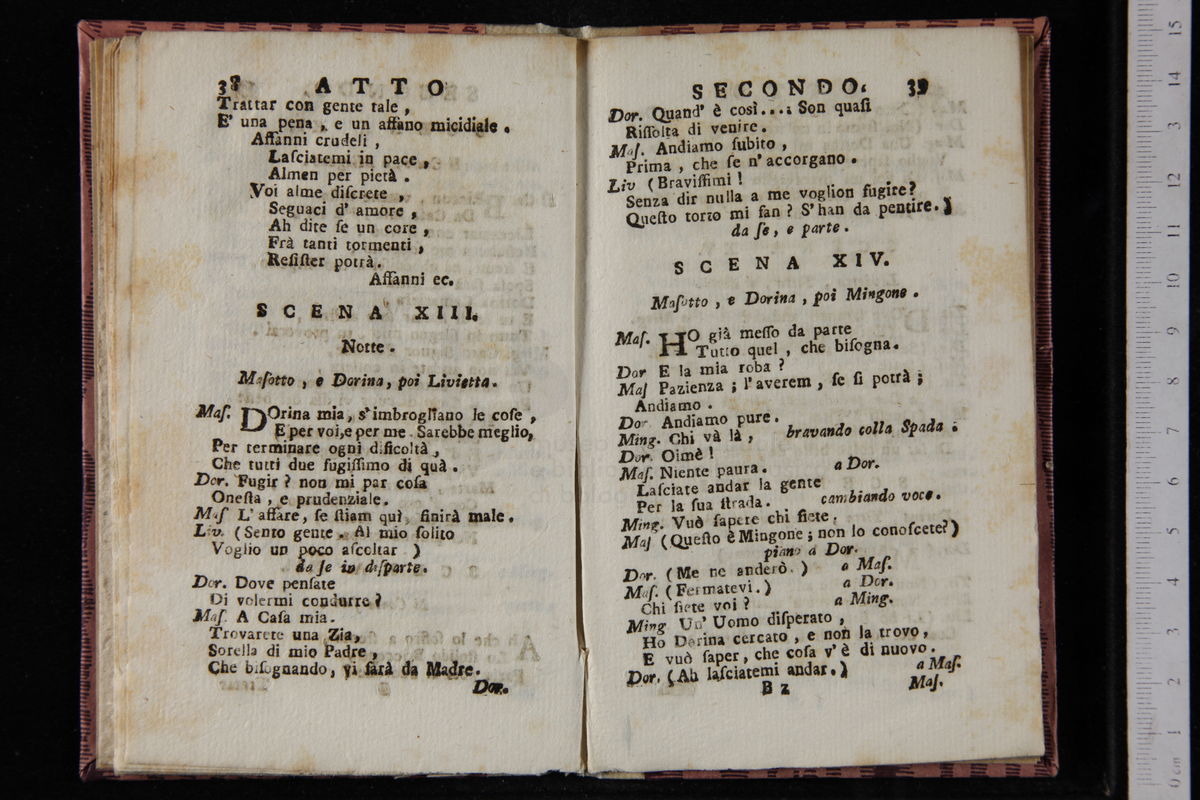 38 ATTO
Trattar con gente tale,
E' una pena, e un affano micidiale.
Affanni crudeli,
Laſciatemi in pace,
Almen per pietà.
Voi alme diſcrete,
Seguaci d' amore,
Ah dite ſe un core,
Frà tanti tormenti,
Reſiſter potrà.
Affanni ec.
SCENA XIII.
Notte.
Maſotto, e Dorina, poi Livietta.
Maſ. DOrina mia, s'imbrogliano le coſe,
E per voi,e per me. Sarebbe meglio,
Per terminare ogni dificoltà,
Che tutti due fugiſſimo di quà.
Dor. Fugir? non mi par coſa
Oneſta, e prudenziale.
Maſ L' affare, ſe ſtiam quì, finirà male.
Liv. (Sento gente. Al mio ſolito
Voglio un poco aſcoltar )
da ſe in diſparte.
Dor. Dove penſate
Di volermi condurre?
Maſ. A Caſa mia.
Trovarete una Zia,
Sorella di mio Padre,
Che biſognando, vi farà da Madre.
Dor.
SECONDO. 39
Dor. Quand' è così.... Son quaſi
Riſſolta di venire.
Maſ. Andiamo ſubito,
Prima, che ſe n' accorgano.
Liv (Braviſſimi!
Senza dir nulla a me voglion fugire?
Queſto torto mi fan? S'han da pentire.)
da ſe, e parte.
SCENA XIV.
Maſotto, e Dorina, poi Mingone.
Maſ. HO già meſſo da parte
Tutto quel, che biſogna.
Dor E la mia roba?
Maſ Pazienza; l'averem, ſe ſi potrà;
Andiamo.
Dor Andiamo pure.
Ming. Chi và là, bravando colla Spada.
Dor. Oimè!
Maſ. Niente paura. a Dor.
Laſciate andar la gente
Per la ſua ſtrada. cambiando voce.
Ming. Vuò ſapere chi ſiete.
Maſ (Queſto è Mingone; non lo conoſcete?)
piano a Dor.
Dor. (Me ne anderò.) a Maſ.
Maſ. (Fermatevi.) a Dor.
Chi ſiete voi? a Ming.
Ming Un' Uomo diſperato,
Ho Dorina cercato, e non la trovo,
E vuò ſaper, che coſa v' è di nuovo.
Dor. (Ah laſciatemi andar.) a Maſ.
B 2 Maſ.
0 cm 1 2 3 4 5 6 7 8 9 10 11 12 13 14 15